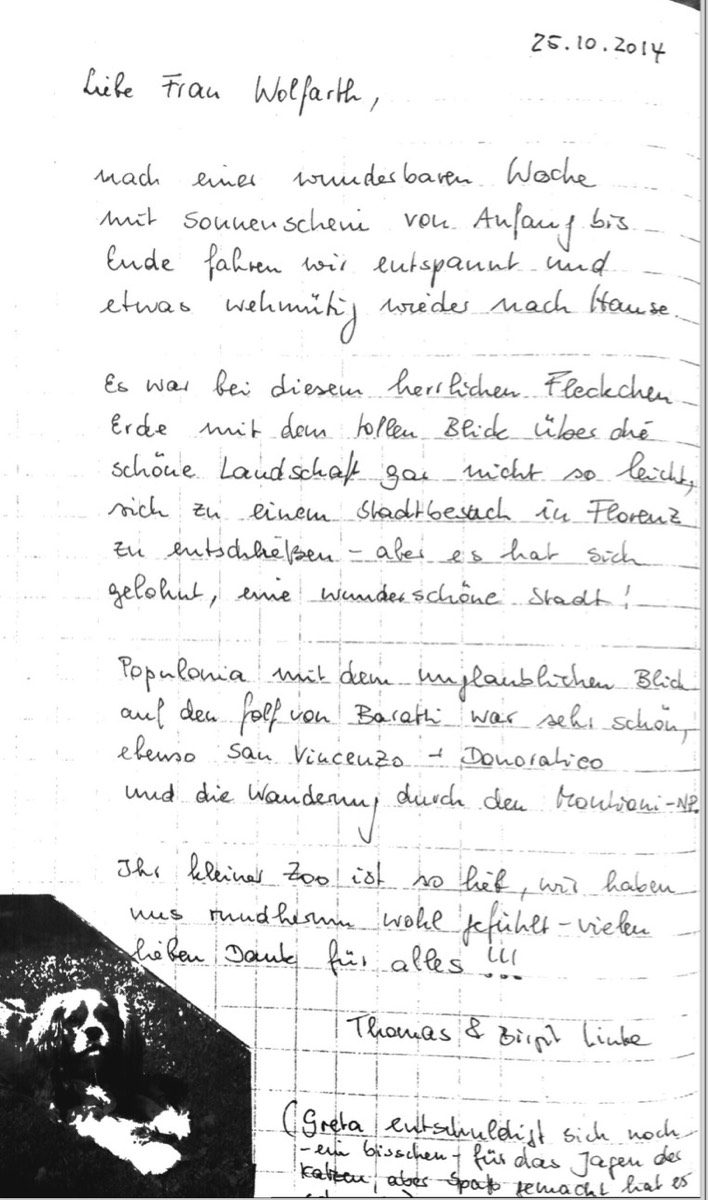 25.10.2014
Liebe Frau Wolfarth,
nach einer wunderbaren Woche
mit Sonnenschein von Anfang bis
Ende fahren wir entspannt und
etwas wehmütig wieder nach Hause.
Es war bei diesem herrlichen Fleckchen
Erde mit dem tollen Blick über die
schöne Landschaft gar nicht so leicht,
sich zu einem Stadtbesuch in Florenz
zu entschließen – aber es hat sich
gelohnt, eine wunderschöne Stadt!
Populonia mit dem unglaublichen Blick
auf den Golf von Baratti war sehr schön,
ebenso San Vincenzo + Donoratico
und die Wanderung durch den
Ihr kleiner Zoo ist so lieb, wir haben
uns rundherum wohl gefühlt – vielen
lieben Dank für alles !!!
Thomas & Birgit Linke
(Greta entschuldigt sich noch
- ein bisschen - für das Jagen der
Katzen, aber Spaß gemacht hat es